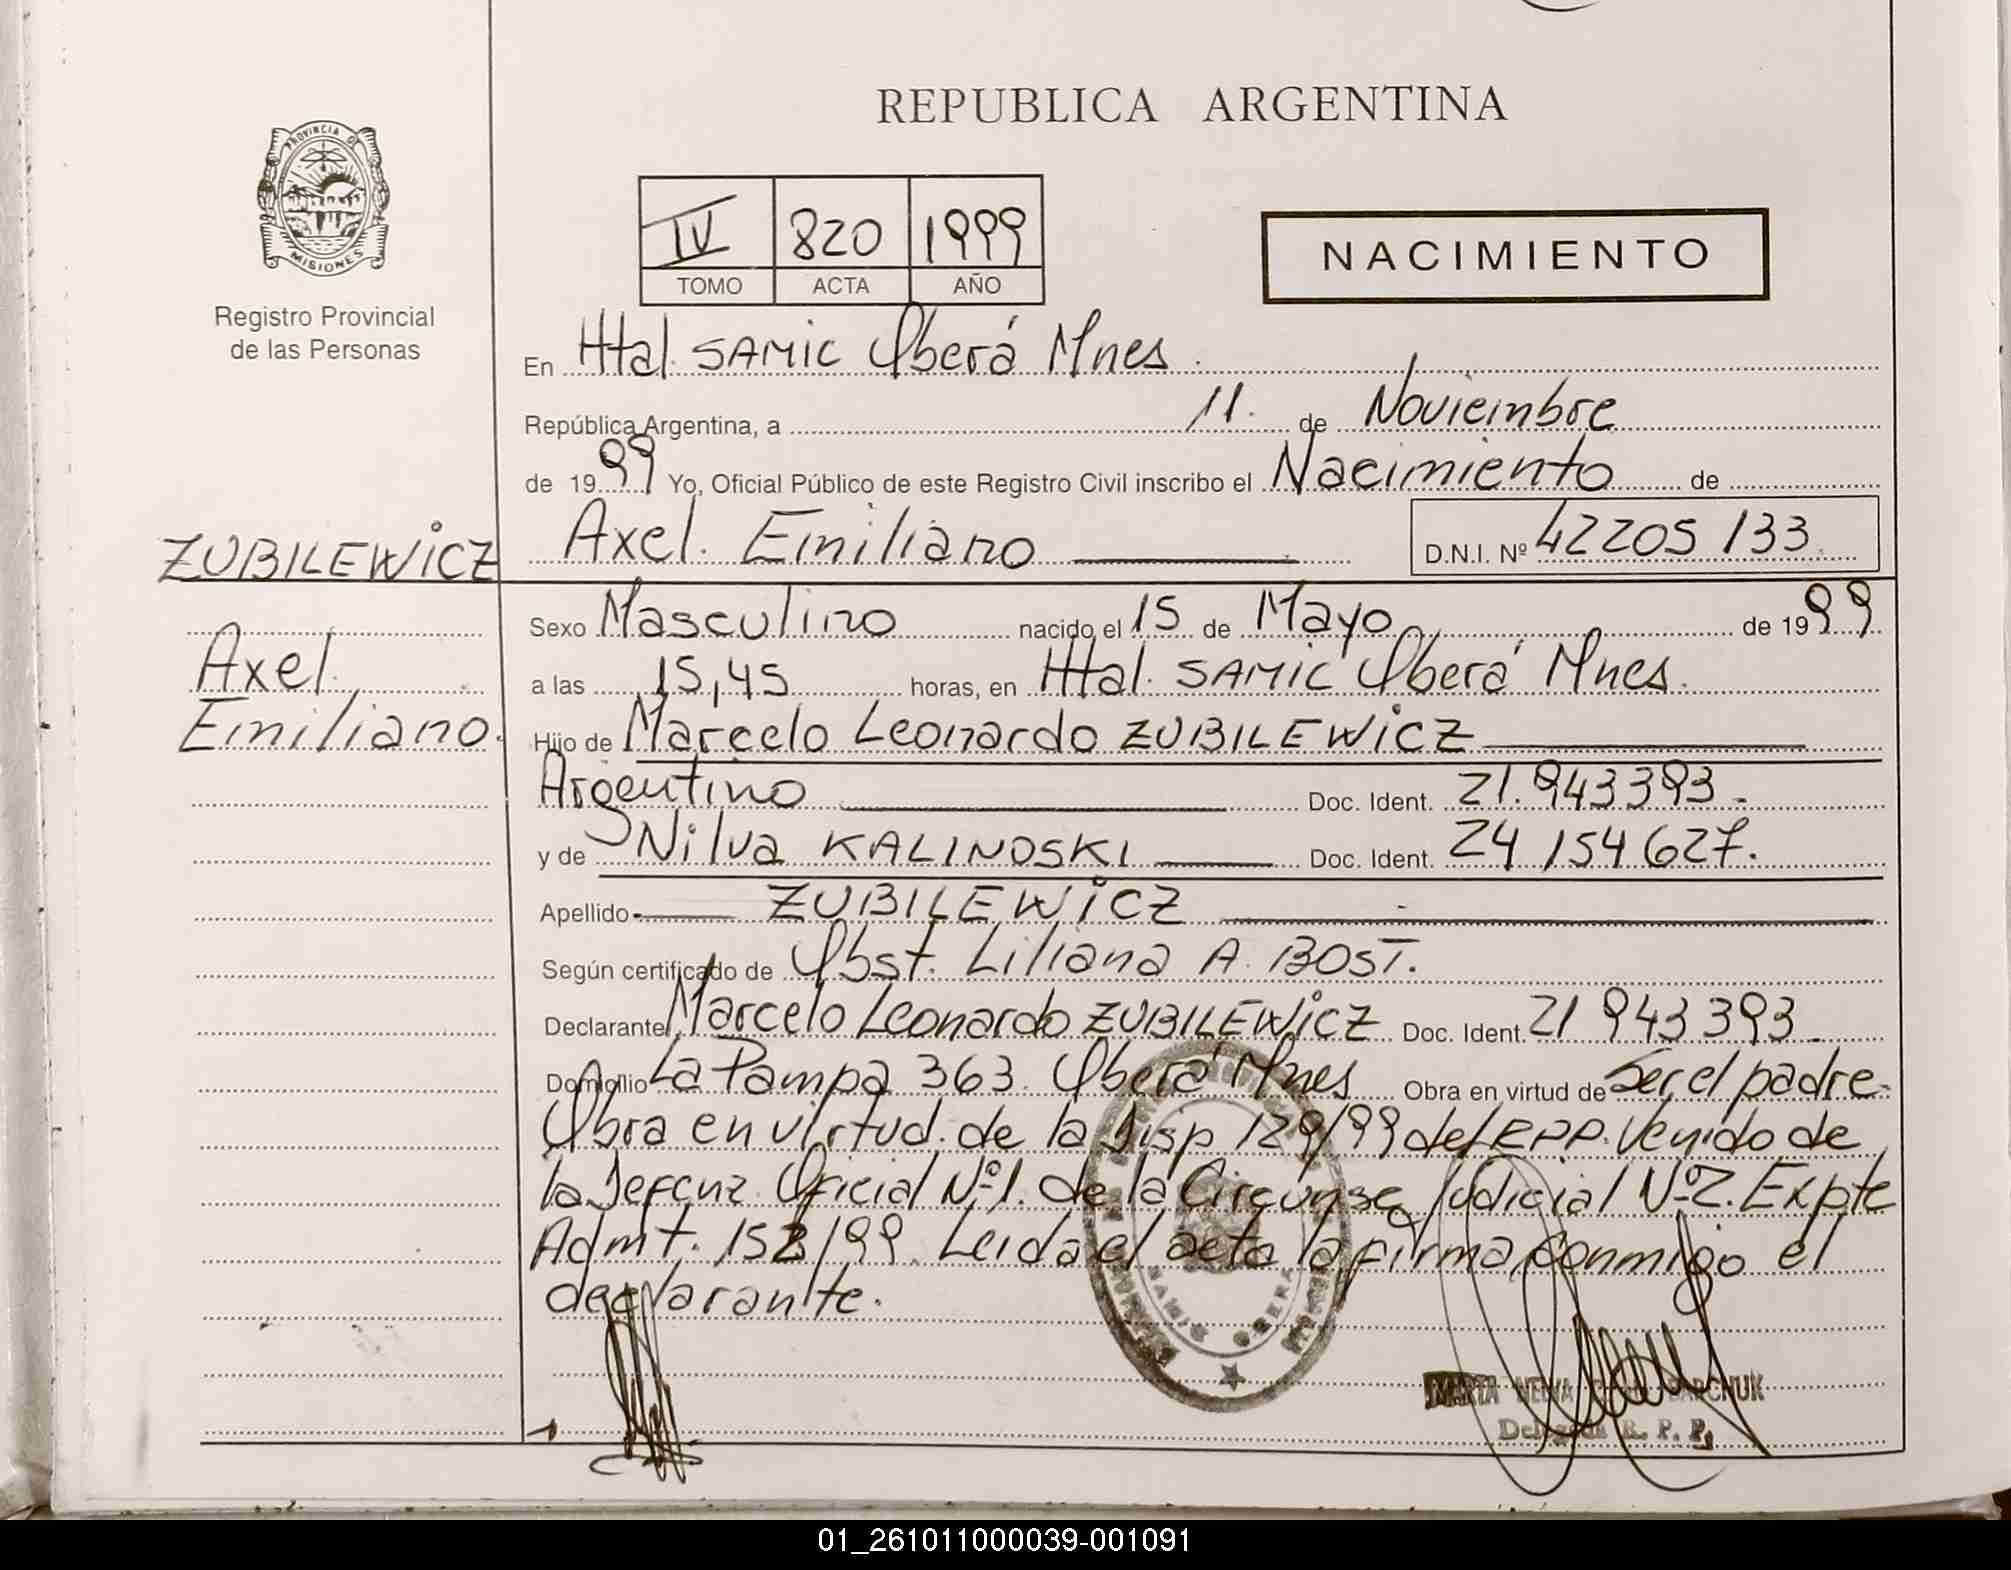 REPUBLICA ARGENTINA
PROVINCIA DE
MISIONES
Registro Provincial
de las Personas
IV 820 1999
TOMO ACTA AÑO
NACIMIENTO
En Htal. SAMIC Oberá Mnes.
República Argentina, a 11. de Noviembre
de 1999 Yo, Oficial Público de este Registro Civil inscribo el Nacimiento de
ZUBILEWICZ
Axel. Emiliano D.N.I. Nº 42205133.
Sexo Masculino nacido el 15 de Mayo de 1999
Axel.
Emiliano.
a las 15,45 horas, en Htal. SAMIC Oberá Mnes.
Hijo de Marcelo Leonardo ZUBILEWICZ
Argentino Doc. Ident. 21.943393.
y de Nilva KALINOSKI Doc. Ident. 24 154 627.
Apellido ZUBILEWICZ
Según certificado de Obst. Liliana A. BOST.
Declarante Marcelo Leonardo ZUBILEWICZ Doc. Ident. 21 943 393.
Domicilio La Pampa 363. Oberá Mnes Obra en virtud de Ser el padre.
Obra en virtud. de la Disp 129/99 del RPP. Venido de
la Defenz. Oficial Nº1. de la Circunsc Judicial Nº2. Expte
Admt. 152/99. Leida el acta la firma conmigo el
declarante.
SAMIC OBERA
MARTA BARCHUK
Delegada R. P. P.
01_261011000039-001091